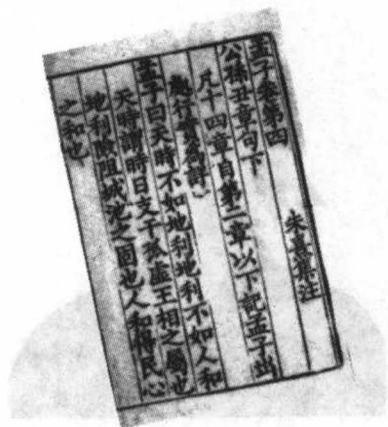 孟子卷第四
朱熹集注
公孫丑章句下
凡十四章自第二章以下記孟子出
處行實爲詳
孟子曰天時不如地利地利不如人和
天時謂時日支干孤虛王相之屬也
地利險阻城池之固也人和得民心
之和也